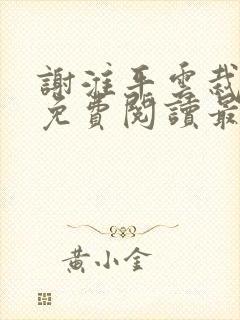 謝淮平雲裁
免費閱讀最
黃小金